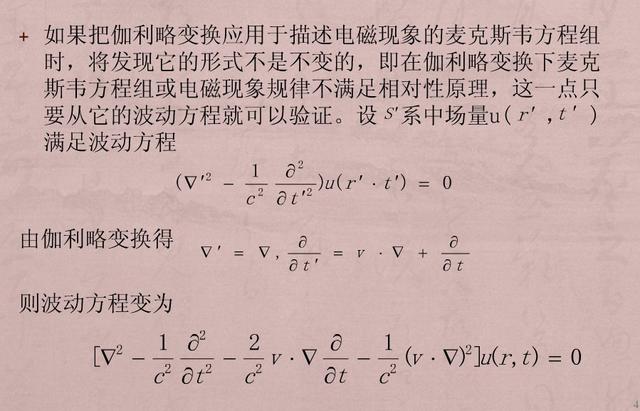 + 如果把伽利略变换应用于描述电磁现象的麦克斯韦方程组
时，将发现它的形式不是不变的，即在伽利略变换下麦克
斯韦方程组或电磁现象规律不满足相对性原理，这一点只
要从它的波动方程就可以验证。设 S′系中场量u( r′ ,t′ )
满足波动方程
(∇′² − 1/c² ∂²/∂t′²)u(r′·t′) = 0
由伽利略变换得 ∇′ = ∇, ∂/∂t′ = v · ∇ + ∂/∂t
则波动方程变为
[∇² − 1/c² ∂²/∂t² − 2/c² v·∇ ∂/∂t − 1/c² (v·∇)²]u(r,t) = 0
4